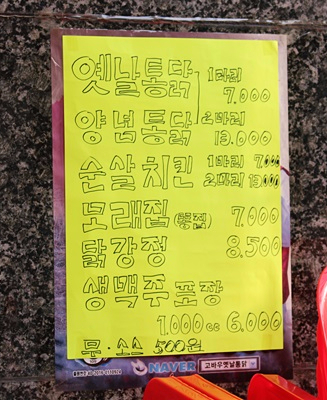 옛날통닭 1마리 7.000
양념통닭 2마리 13.000
순살치킨 1마리 7.000
2마리 13,000
모래집(똥집) 7,000
닭강정 8,500
생맥주 포장
1,000cc 6,000
무·소스 500원
NAVER 고바우옛날통닭